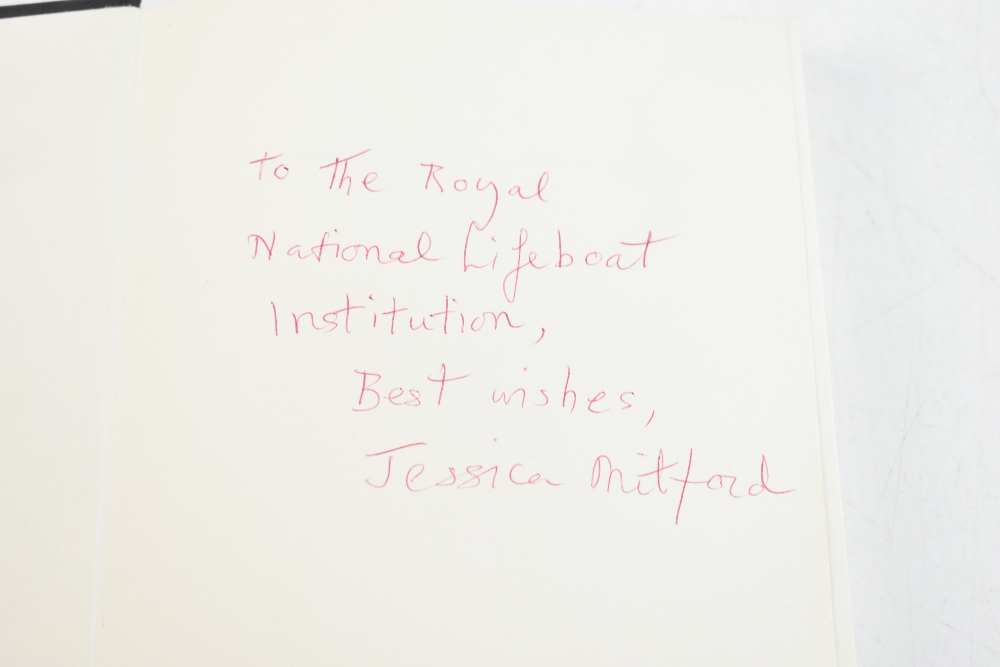 To The Royal
National Lifeboat
Institution,
Best wishes,
Jessica Mitford